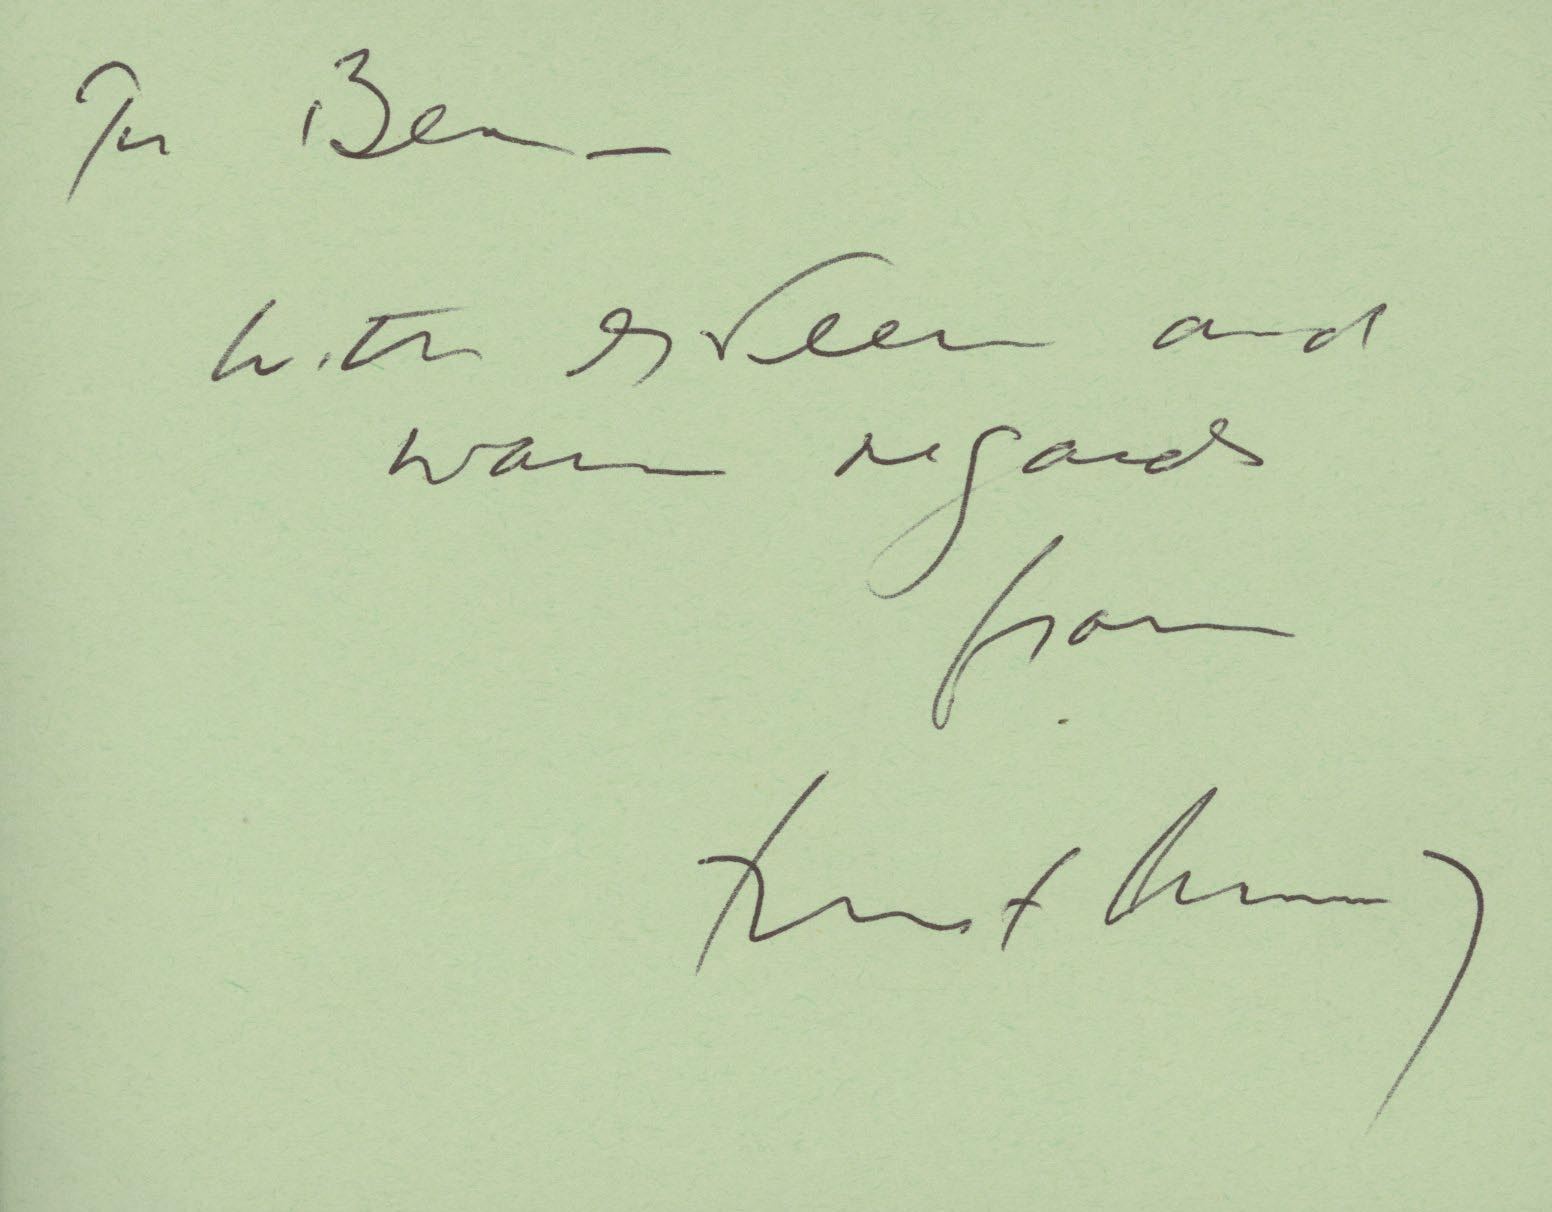 For Ben —
with esteem and
warm regards
from